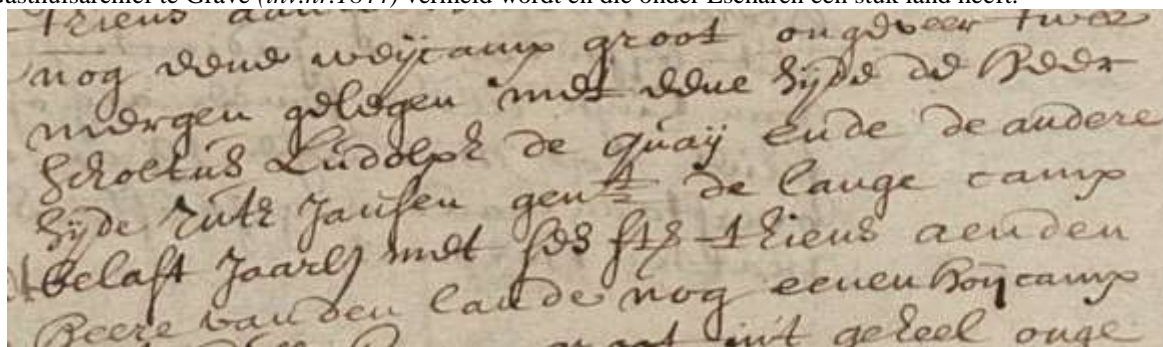 Gasthuisarchief te Grave (inv.nr.1877) vermeld wordt en die onder Escharen een stuk land heeft.
nog eene weijcamp groot ongeveer twee
mergen gelegen met eene sijde de Heer
Scholtus Ludolph de Quaij ende de andere
sijde Rutt Jansen gent de lange camp
belast Jaarl met ses st thiens aen den
Heere van den lande nog eenen hoijcamp
groot int geheel onge